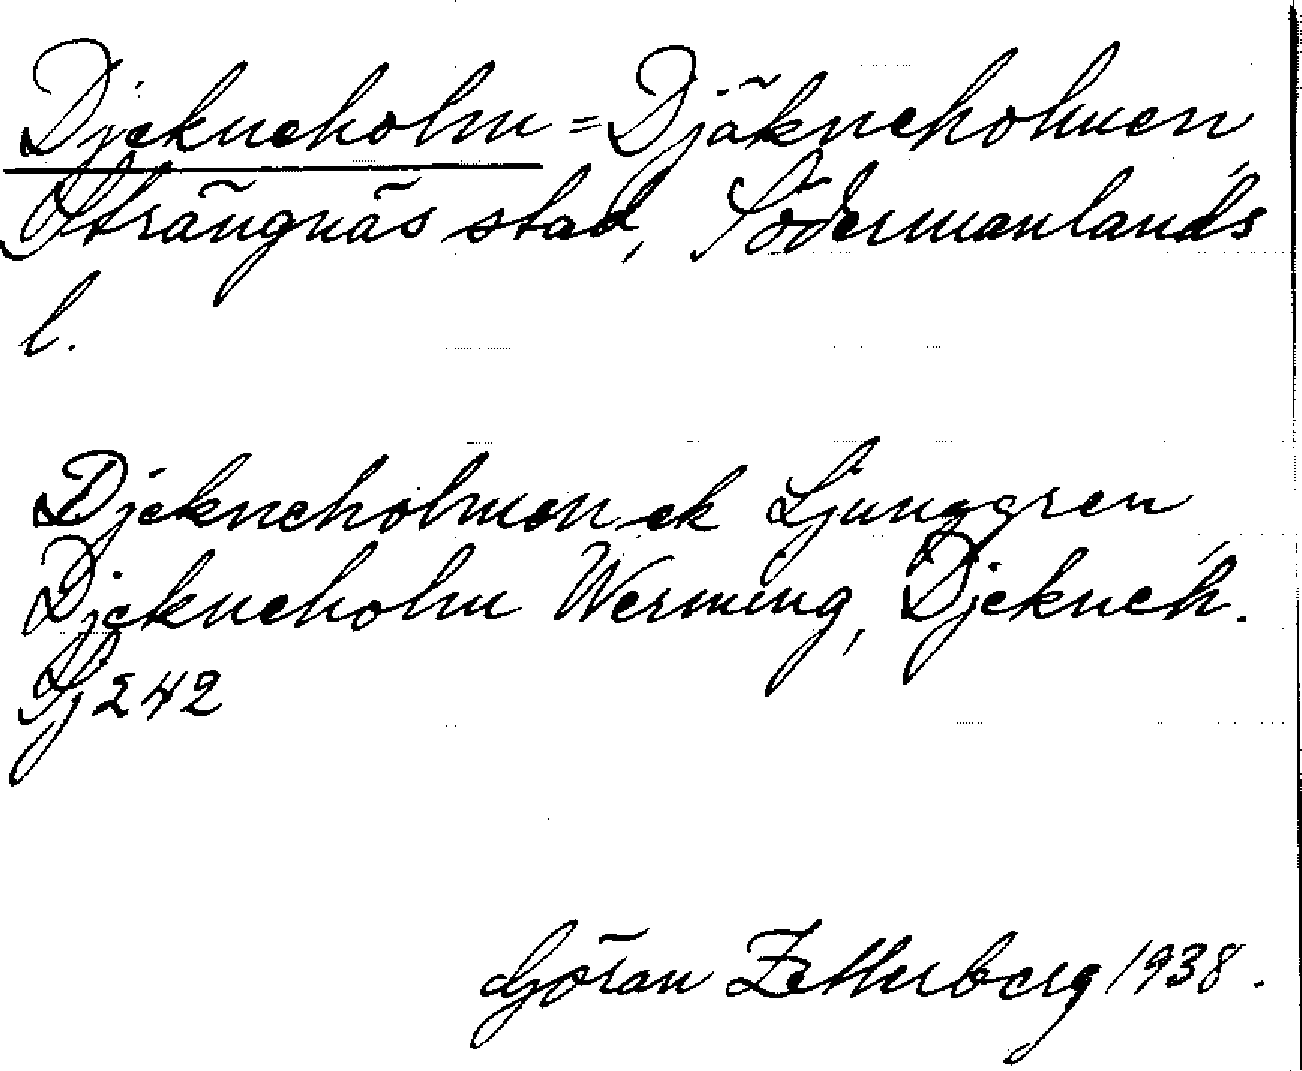 Djekneholm = Djäkneholmen
Strängnäs stad, Södermanlands
l.
Djekneholmen ek Ljunggren
Djekneholm Werming, Djekneh.
Sj 242
Göran Zetterberg 1938.